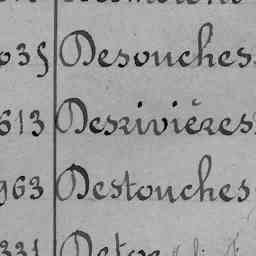 035 Desouches
613 Desrivières
963 Destouches
331